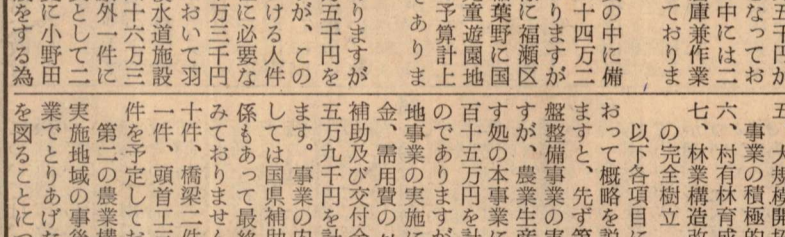 五千円か
なってお
中には二
庫兼作業
ておりま
の中に備
りますが
十四万二
に福瀬区
葉野に国
童遊園地
予算計上
でありま
りますが
五千円を
が、この
ける人件
に必要な
万三千円
おいて羽
水道施設
十六万三
外一件に
として二
に小野田
をする為
五　大規模開
事業の積極的
六、村有林育成
七、林業構造改
の完全樹立
以下各項目に
おって概略を説
ますと、先ず第
盤整備事業の実
すが、農業生産
す処の本事業に
百十五万円を計
のでありますが
地事業の実施に
金、需用費の
補助及び交付金
五万九千円を計
ます。事業の内
しては国県補助
係もあって最終
みておりません
十件、橋梁二件
一件、頭首工三
件を予定してお
第二の農業構
実施地域の事後
業でとりあげ
を図ることにつ